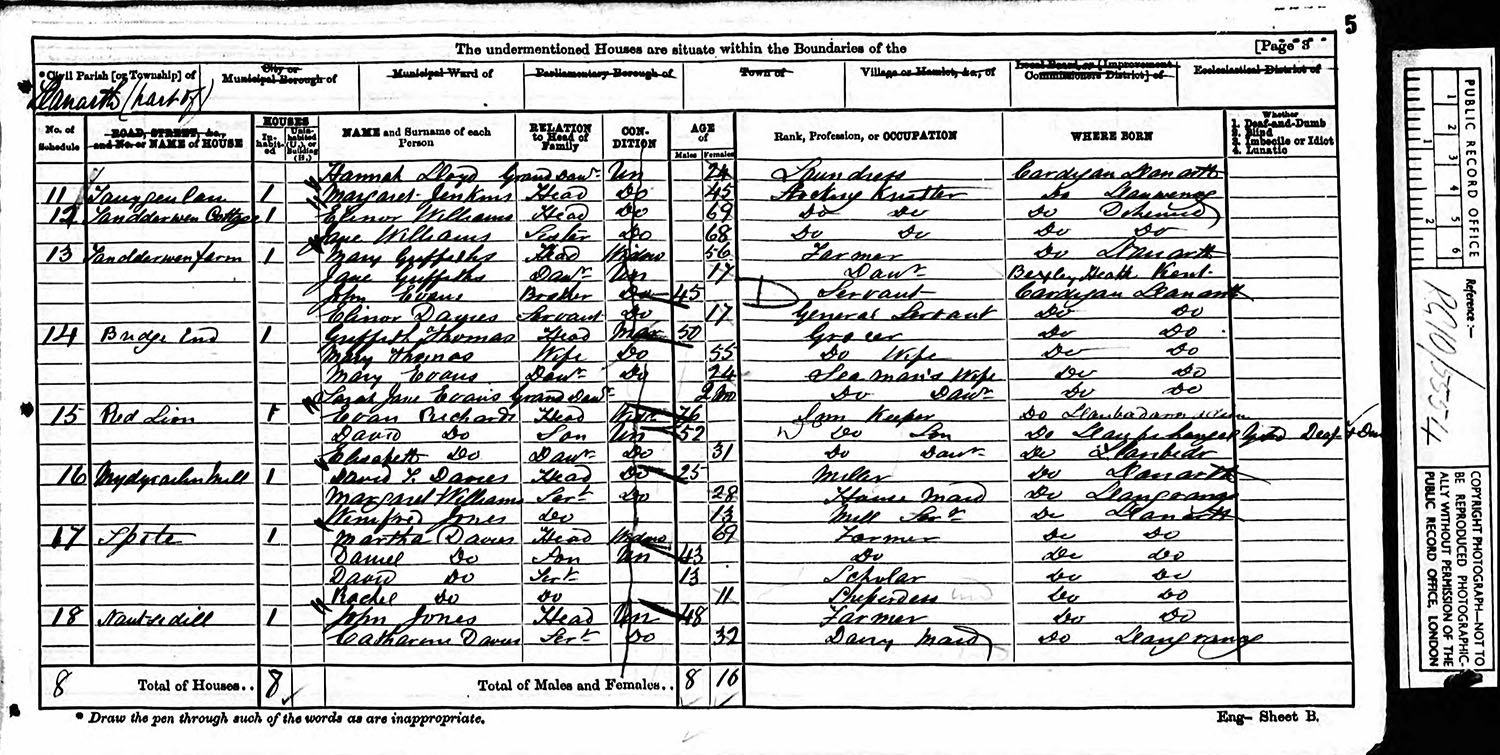 5
The undermentioned Houses are situate within the Boundaries of the [Page 3
*Civil Parish [or Township] of City or Municipal Borough of Municipal Ward of Parliamentary Borough of Town of Village or Hamlet, &c., of Local Board, or [Improvement Commissioners District] of Ecclesiastical District of
Llanarth (part of)
No. of Schedule ROAD, STREET, &c., and No. or NAME of HOUSE HOUSES Inhabited Uninhabited (U.), or Building (B.) NAME and Surname of each Person RELATION to Head of Family CONDITION AGE of Males Females Rank, Profession, or OCCUPATION WHERE BORN Whether 1. Deaf-and-Dumb 2. Blind 3. Imbecile or Idiot 4. Lunatic
Hannah Lloyd Grand Dawr. Un 24 Laundress Cardigan Llanarth
11 1 Margaret Jenkins Head Do 45 Stocking Knitter Do Llanwenog
12 Tandderwen Cottage 1 Elinor Williams Head Do 69 Do Do Do
Jane Williams Sister Do 68 Do Do Do Do
13 Tandderwen farm 1 Mary Griffiths Head Widow 56 Farmer Do Llanarth
Jane Griffiths Dawr. Un 17 Dawr. Bexley Heath Kent
John Evans Brother Do 45 Servant Cardigan Llanarth
Elinor Davies Servant Do 17 General Servant Do Do
14 Bridge End 1 Griffith Thomas Head Mar 50 Grocer Do Do
Mary Thomas Wife Do 55 Do Wife Do Do
Mary Evans Dawr. Do 24 Sea man's Wife Do Do
Sarah Jane Evans Grand Dawr. 2 mo Do Dawr. Do Do
15 Red Lion 1 Evan Richards Head Widr 76 Inn Keeper Do
David Do Son Un 52 Do Son Do Deaf & Dum
Elizabeth Do Dawr. Do 31 Do Dawr. Do Llanbedr
16 Mill 1 David T. Davies Head Do 25 Miller Do Llanarth
Margaret Williams Sert. Do 28 House Maid Do Llangranog
Winifred Jones Do 13 Mill Sert. Do Llanarth
17 Spite 1 Martha Davies Head Widow 69 Farmer Do Do
Daniel Do Son Un 43 Do Do Do
David Do Sert. 13 Scholar Do Do
Rachel Do Do 11 Sheperdess Do Do
18 1 John Jones Head Un 48 Farmer Do Do
Catharine Davies Sert. Do 32 Dairy Maid Do Llangranog
8 Total of Houses.. 8 Total of Males and Females.. 8 16
* Draw the pen through such of the words as are inappropriate. Eng- Sheet B.
PUBLIC RECORD OFFICE
1 2 3 4 5 6
1 2
Reference :-
RG10/5554
COPYRIGHT PHOTOGRAPH—NOT TO BE REPRODUCED PHOTOGRAPHICALLY WITHOUT PERMISSION OF THE PUBLIC RECORD OFFICE, LONDON